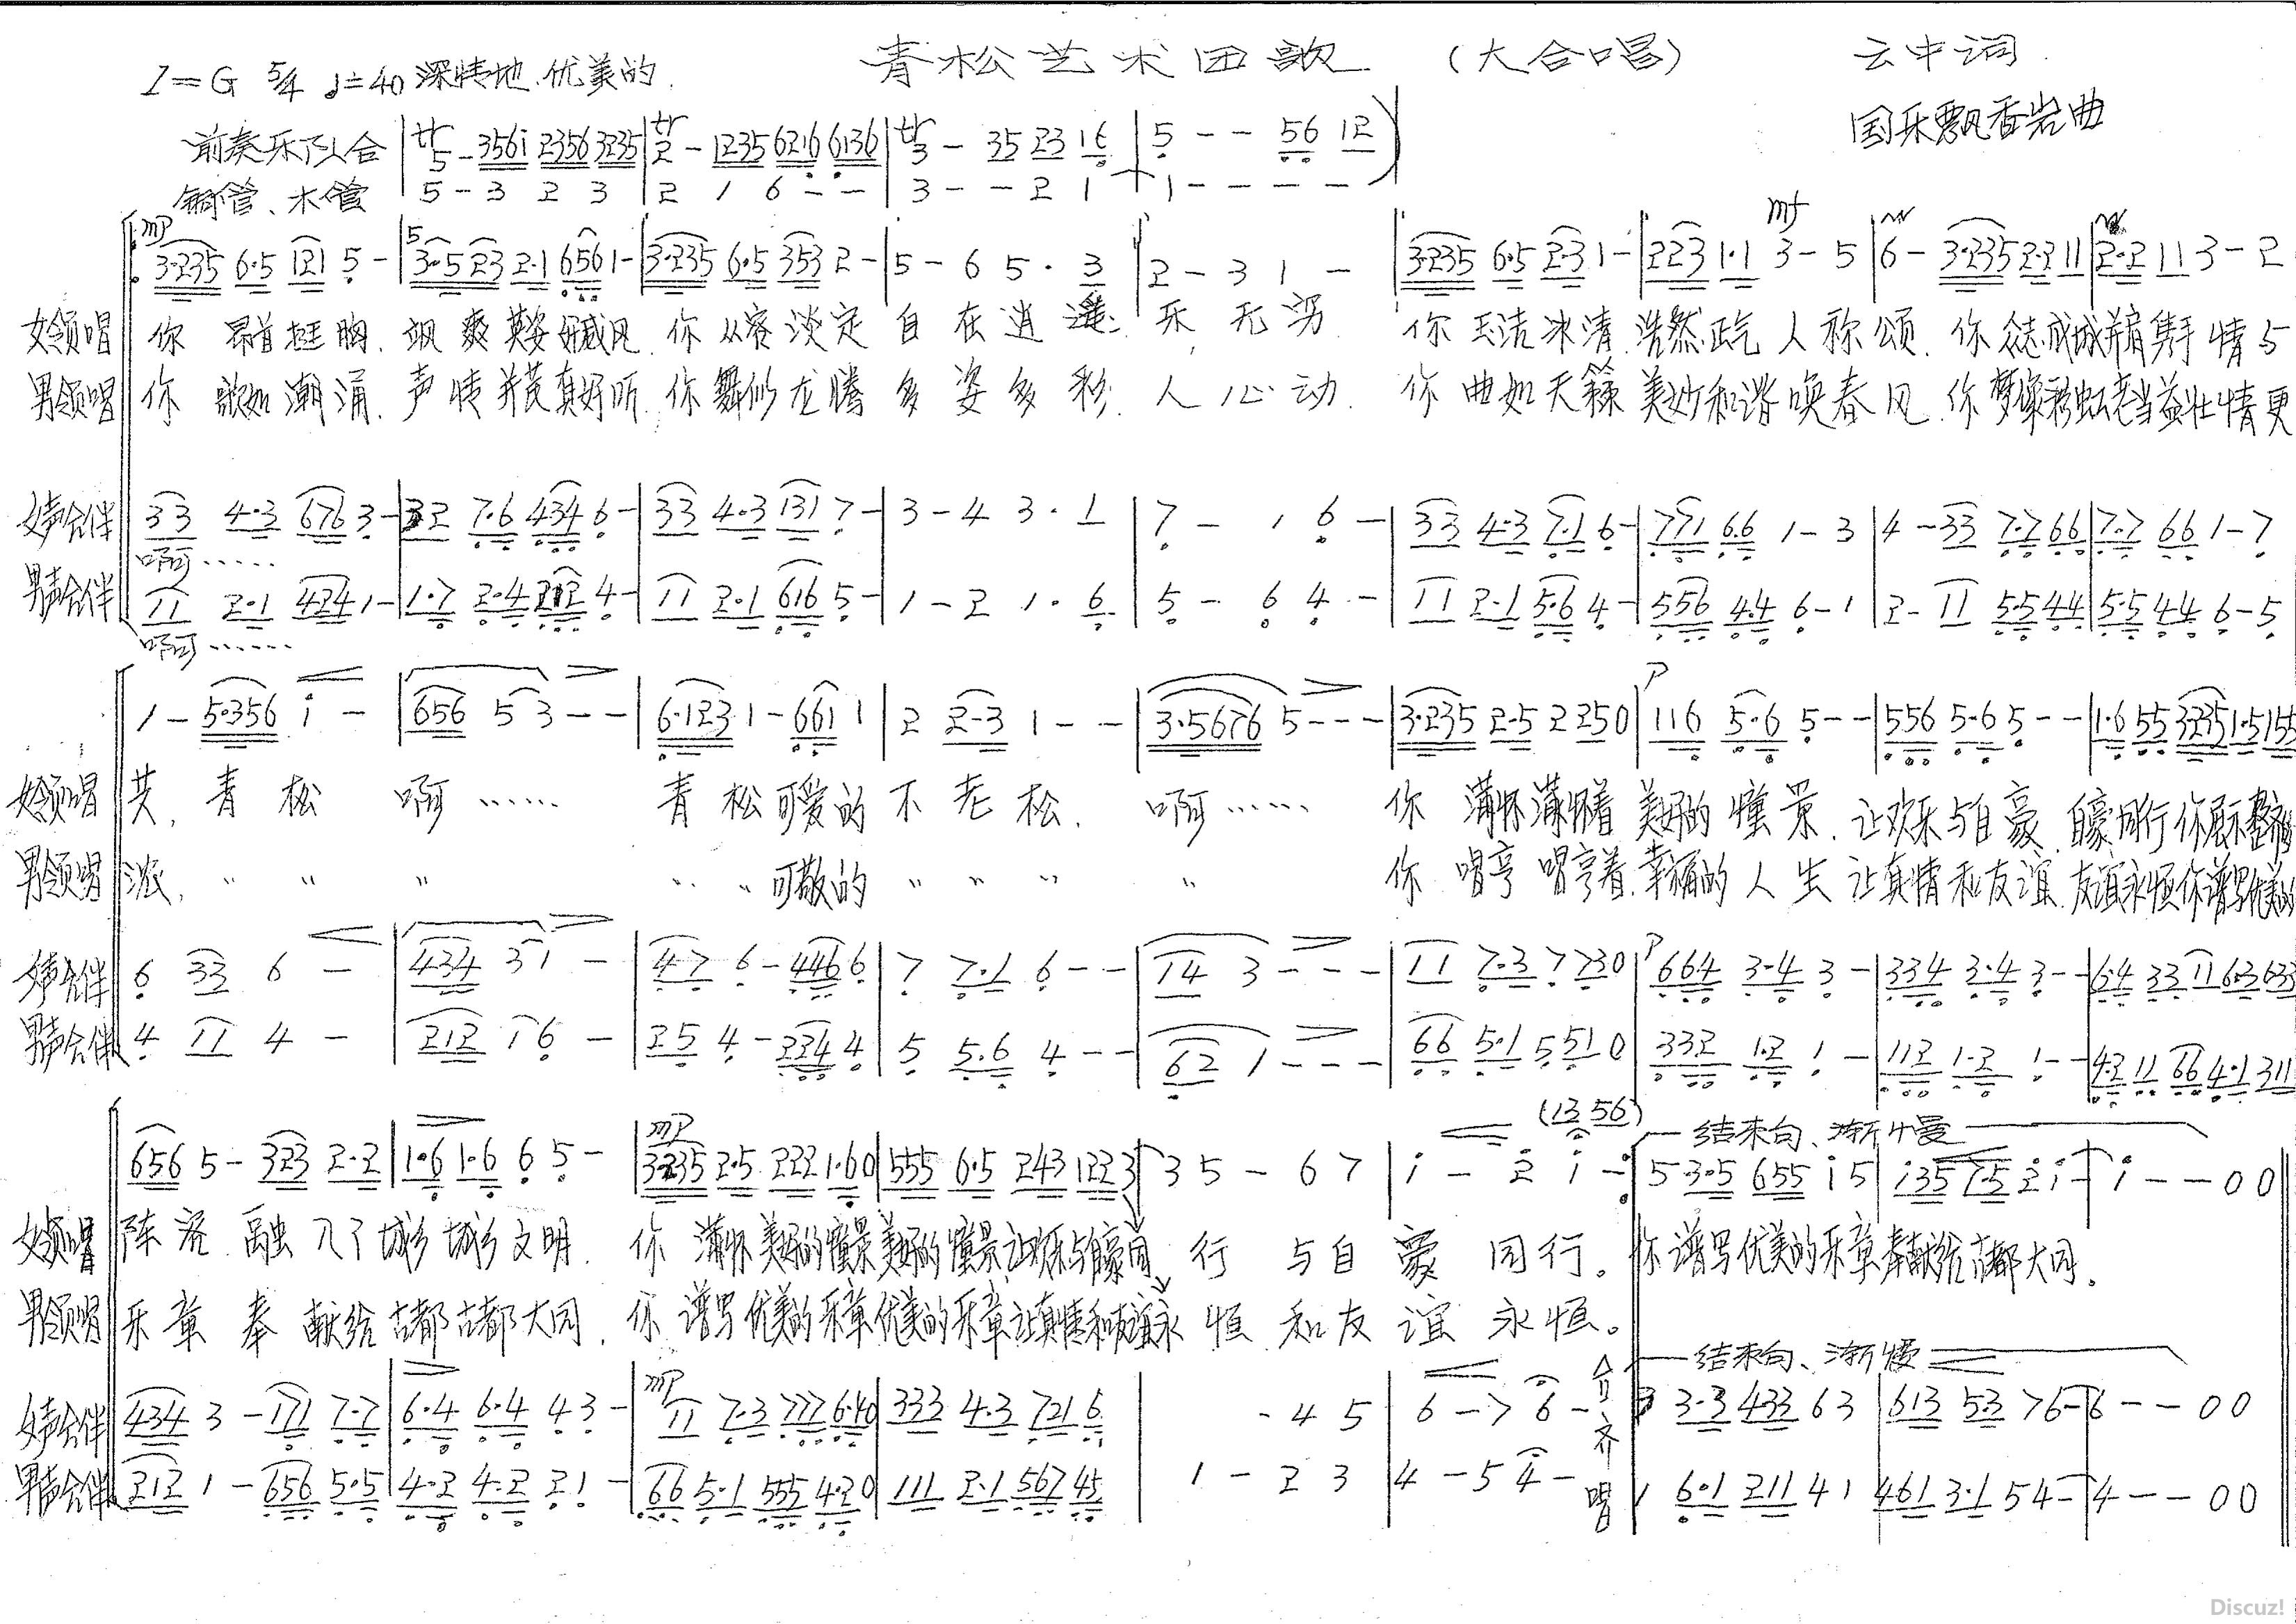 青松艺术团歌 (大合唱) 云中词
1=G 5/4 ♩=40 深情地.优美的.
国乐飘香岩曲
前奏乐队合 | tr 5 - 3561 2356 3235 | tr 2 - 1235 6216 6136 | tr 3 - 35 23 16 | 5 - - 56 12 )
铜管、木管 5 - 3 2 3 | 2 1 6 - - | 3 - - 2 1 | 1 - - - -
mp mf
3·235 6·5 121 5 - | 3·5 23 2·1 656 1 - | 3·235 6·5 353 2 - | 5 - 6 5 · 3 | 2 - 3 1 - | 3·235 6·5 2·3 1 - | 223 1·1 3 - 5 | 6 - 3·235 2·2 11 | 2·2 11 3 - 2
女领唱 你 昂首挺胸. 飒爽英姿 威风. 你从容淡定 自在逍遥. 乐无穷 你玉洁冰清 浩然正气 人称颂. 你众志成城并肩携手情与
男领唱 你 歌如潮涌. 声情并茂真好听. 你舞似龙腾 多姿多彩. 人心动. 你曲如天籁 美妙和谐唤春风. 你梦像彩虹老当益壮情更
女声合伴 33 4·3 676 3 - | 32 7·6 434 6 - | 33 4·3 131 7 - | 3 - 4 3 · 1 | 7 - 1 6 - | 33 4·3 7·1 6 - | 771 6·6 1 - 3 | 4 - 33 7·7 66 | 7·7 66 1 - 7
啊……
男声合伴 11 2·1 424 1 - | 1·7 2·4 212 4 - | 11 2·1 616 5 - | 1 - 2 1 · 6 | 5 - 6 4 - | 11 2·1 5·6 4 - | 556 4·4 6 - 1 | 2 - 11 5·5 44 | 5·5 44 6 - 5
啊……
P
1 - 5·356 i - | 656 5 3 - - | 6·123 1 - 661 1 | 2 2·3 1 - - | 3·5676 5 - - - | 3·235 2·5 2 250 | 116 5·6 5 - - | 556 5·6 5 - - | 1·6 55 3235 1·5 155
女领唱 共. 青松 啊…… 青松可爱的不老松. 啊…… 你 满怀满怀着 美好的憧景. 让欢乐与自豪. 自豪同行你展示整齐的
男领唱 浓. 〃 〃 〃 〃 〃 可敬的 〃 〃 〃 〃 你 唱享 唱享着.幸福的人生 让真情和友谊. 友谊永恒你谱写优美的
女声合伴 6 33 6 - | 434 3 1 - | 47 6 - 446 6 | 7 7·1 6 - - | 14 3 - - - | 11 7·3 7 730 | P 664 3·4 3 - | 334 3·4 3 - - | 6·4 33 11 6·3 633
男声合伴 4 11 4 - | 212 1 6 - | 25 4 - 224 4 | 5 5·6 4 - - | 62 1 - - - | 66 5·1 5 51 0 | 332 1·2 1 - | 112 1·2 1 - - | 4·2 11 66 4·1 311
mp (12 56) 结末句、渐慢
656 5 - 323 2·2 | 1·6 1·6 6 5 - | 3·235 2·5 222 1·60 | 555 6·5 243 1223 | 3 5 - 6 7 | i - 2 i - | 5 3·5 655 i 5 | i35 7·5 2 i - | i - - 0 0
女领唱 阵容. 融入了城乡城乡文明. 你 满怀美好的憧景美好的憧景让欢乐与自豪同 行 与自豪 同行。 你谱写优美的乐章奉献给古都大同.
男领唱 乐章 奉献给古都古都大同. 你 谱写优美的乐章优美的乐章让真情和友谊永 恒 和友谊 永恒。
结末句、渐慢
女声合伴 434 3 - 171 7·7 | 6·4 6·4 4 3 - | mp 11 7·3 777 6·40 | 333 4·3 721 6 | - 4 5 | 6 - 7 6 - | 3 3·3 433 6 3 | 613 5·3 7 6 - | 6 - - 0 0
齐唱
男声合伴 212 1 - 656 5·5 | 4·2 4·2 2 1 - | 66 5·1 555 4·20 | 111 2·1 567 45 | 1 - 2 3 | 4 - 5 4 - | 1 6·1 211 4 1 | 461 3·1 5 4 - | 4 - - 0 0
Discuz!